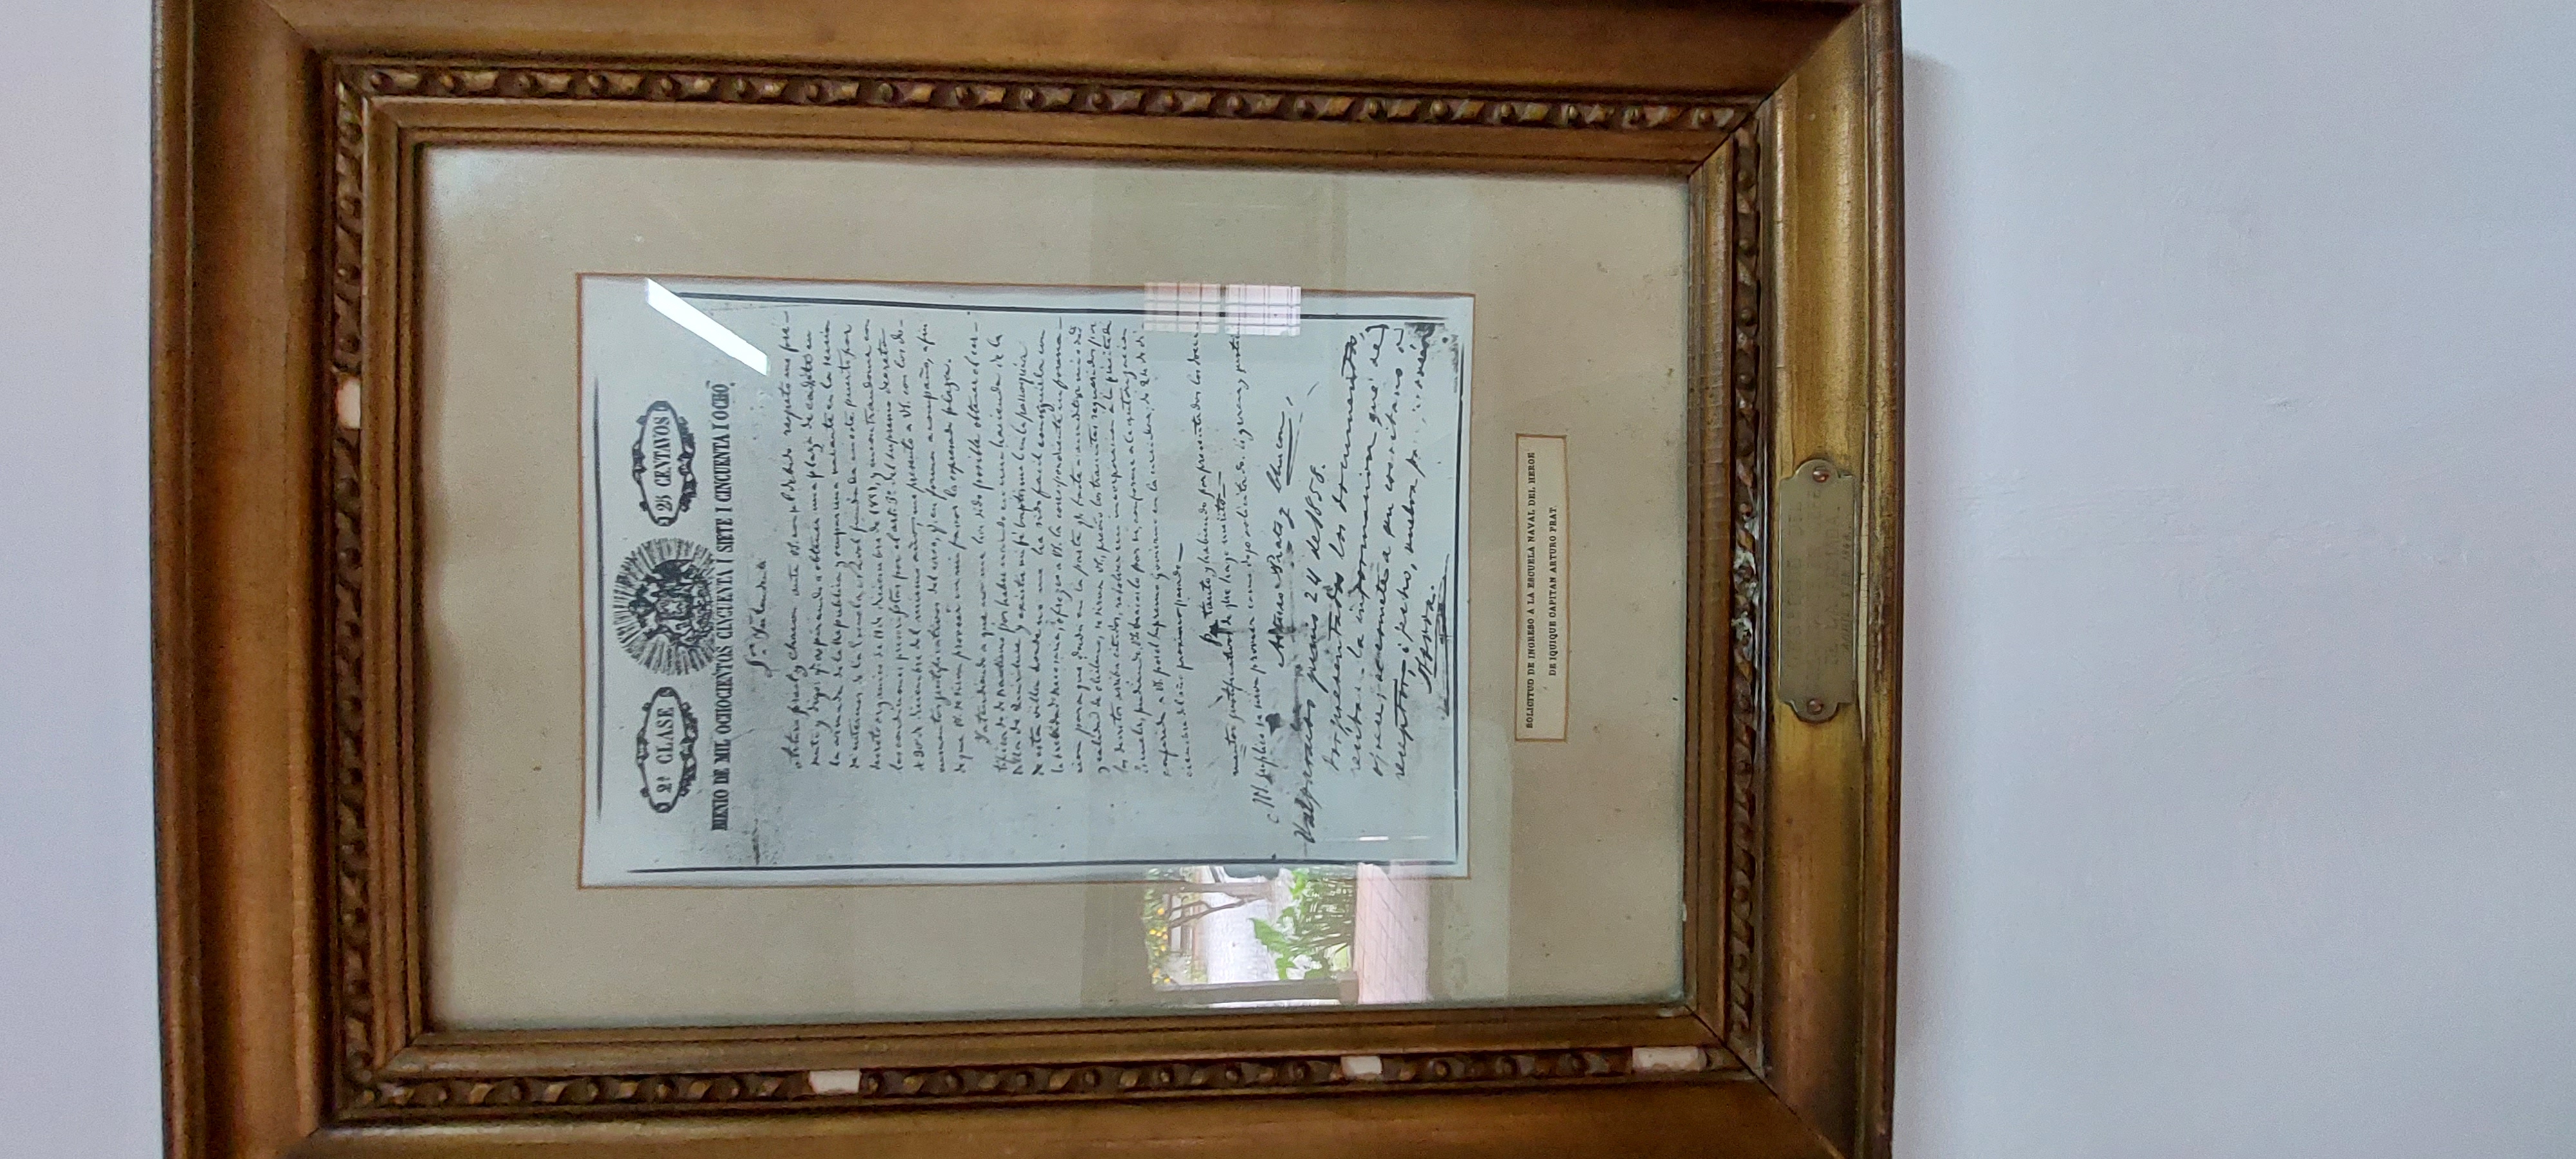 2ª CLASE
25 CENTAVOS
BIENIO DE MIL OCHOCIENTOS CINCUENTA I SIETE I CINCUENTA I OCHO
Sr. Intendente
Arturo Prat y Chacon ante VS. con el debido respeto me pre-
sento y digo: q. aspirando a obtener una plaza de cadete en
la armada de la Republica y ocupar una vacante en la seccion
de internos de la Escuela Naval fundada en este puerto por
decreto organico de de diciembre de y encontrandome con
las condiciones prescriptas por el art. 3º del supremo decreto
de diciembre del mismo año, me presento a VS. con los do-
cumentos justificativos del caso, q. en forma acompaño, a fin
de que VS. se sirva proveer en mi favor la espresada plaza.
Y atendiendo a que no me ha sido posible obtener el cer-
tificado de bautismo por haber nacido en una hacienda de la
Villa de Quirihue y existir mi fé bautismal en la parroquia
de esta villa donde no me ha sido facil conseguirla con
la brebedad necesaria, ofrezco a VS. la correspondiente informa-
cion para que dada en la parte q. baste a acreditar mi edad
y calidad de chileno, se sirva VS., previo los tramites requeridos por
los decretos arriba citados, resolver mi incorporacion a la precitada
Escuela, pudiendo VS. hacerlo por si, conforme a la autorizacion
conferida a VS. por el Supremo Govierno en la de 24 de di-
ciembre del año proximo pasado—
Por tanto y habiendo por presentados los docu-
mentos justificativos de que hago mérito—
A VS. suplico se sirva proveer como dejo solicitado. Es gracia y justicia
Arturo Prat y Chacon,
Valparaiso junio 24 de 1858.
Por presentados los documentos,
reciba la informacion que se
ofrece; se comete a un escribano o
receptor, i fecho, vuelva para
SOLICITUD DE INGRESO A LA ESCUELA NAVAL DEL HEROE
DE IQUIQUE CAPITAN ARTURO PRAT.
OBSEQUIO DEL
DE LA ARMADA